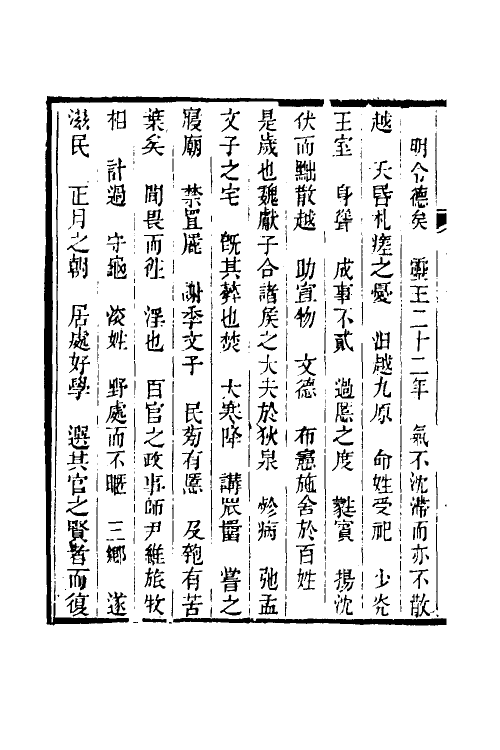 明令德矣　靈王二十二年　氣不沈滯而亦不散
越　天昏札瘥之憂　汨越九原　命姓受祀　少光
王室　身聳　成事不貳　過慝之度　蕤賓　揚沈
伏而黜散越　助宣物　文德　布憲施舍於百姓
是歲也魏獻子合諸侯之大夫於狄泉　疹病　弛孟
文子之宅　旣其葬也焚　大寒降　講眾罶　嘗之
寢廟　禁罝麗　謝季文子　民旁有慝　及匏有苦
葉矣　間畏而往　淫也　百官之政事師尹維旅牧
相　計過　守龜　滚姓　野處而不暱　三鄉　遂
滋民　正月之朝　居處好學　選其官之賢者而復